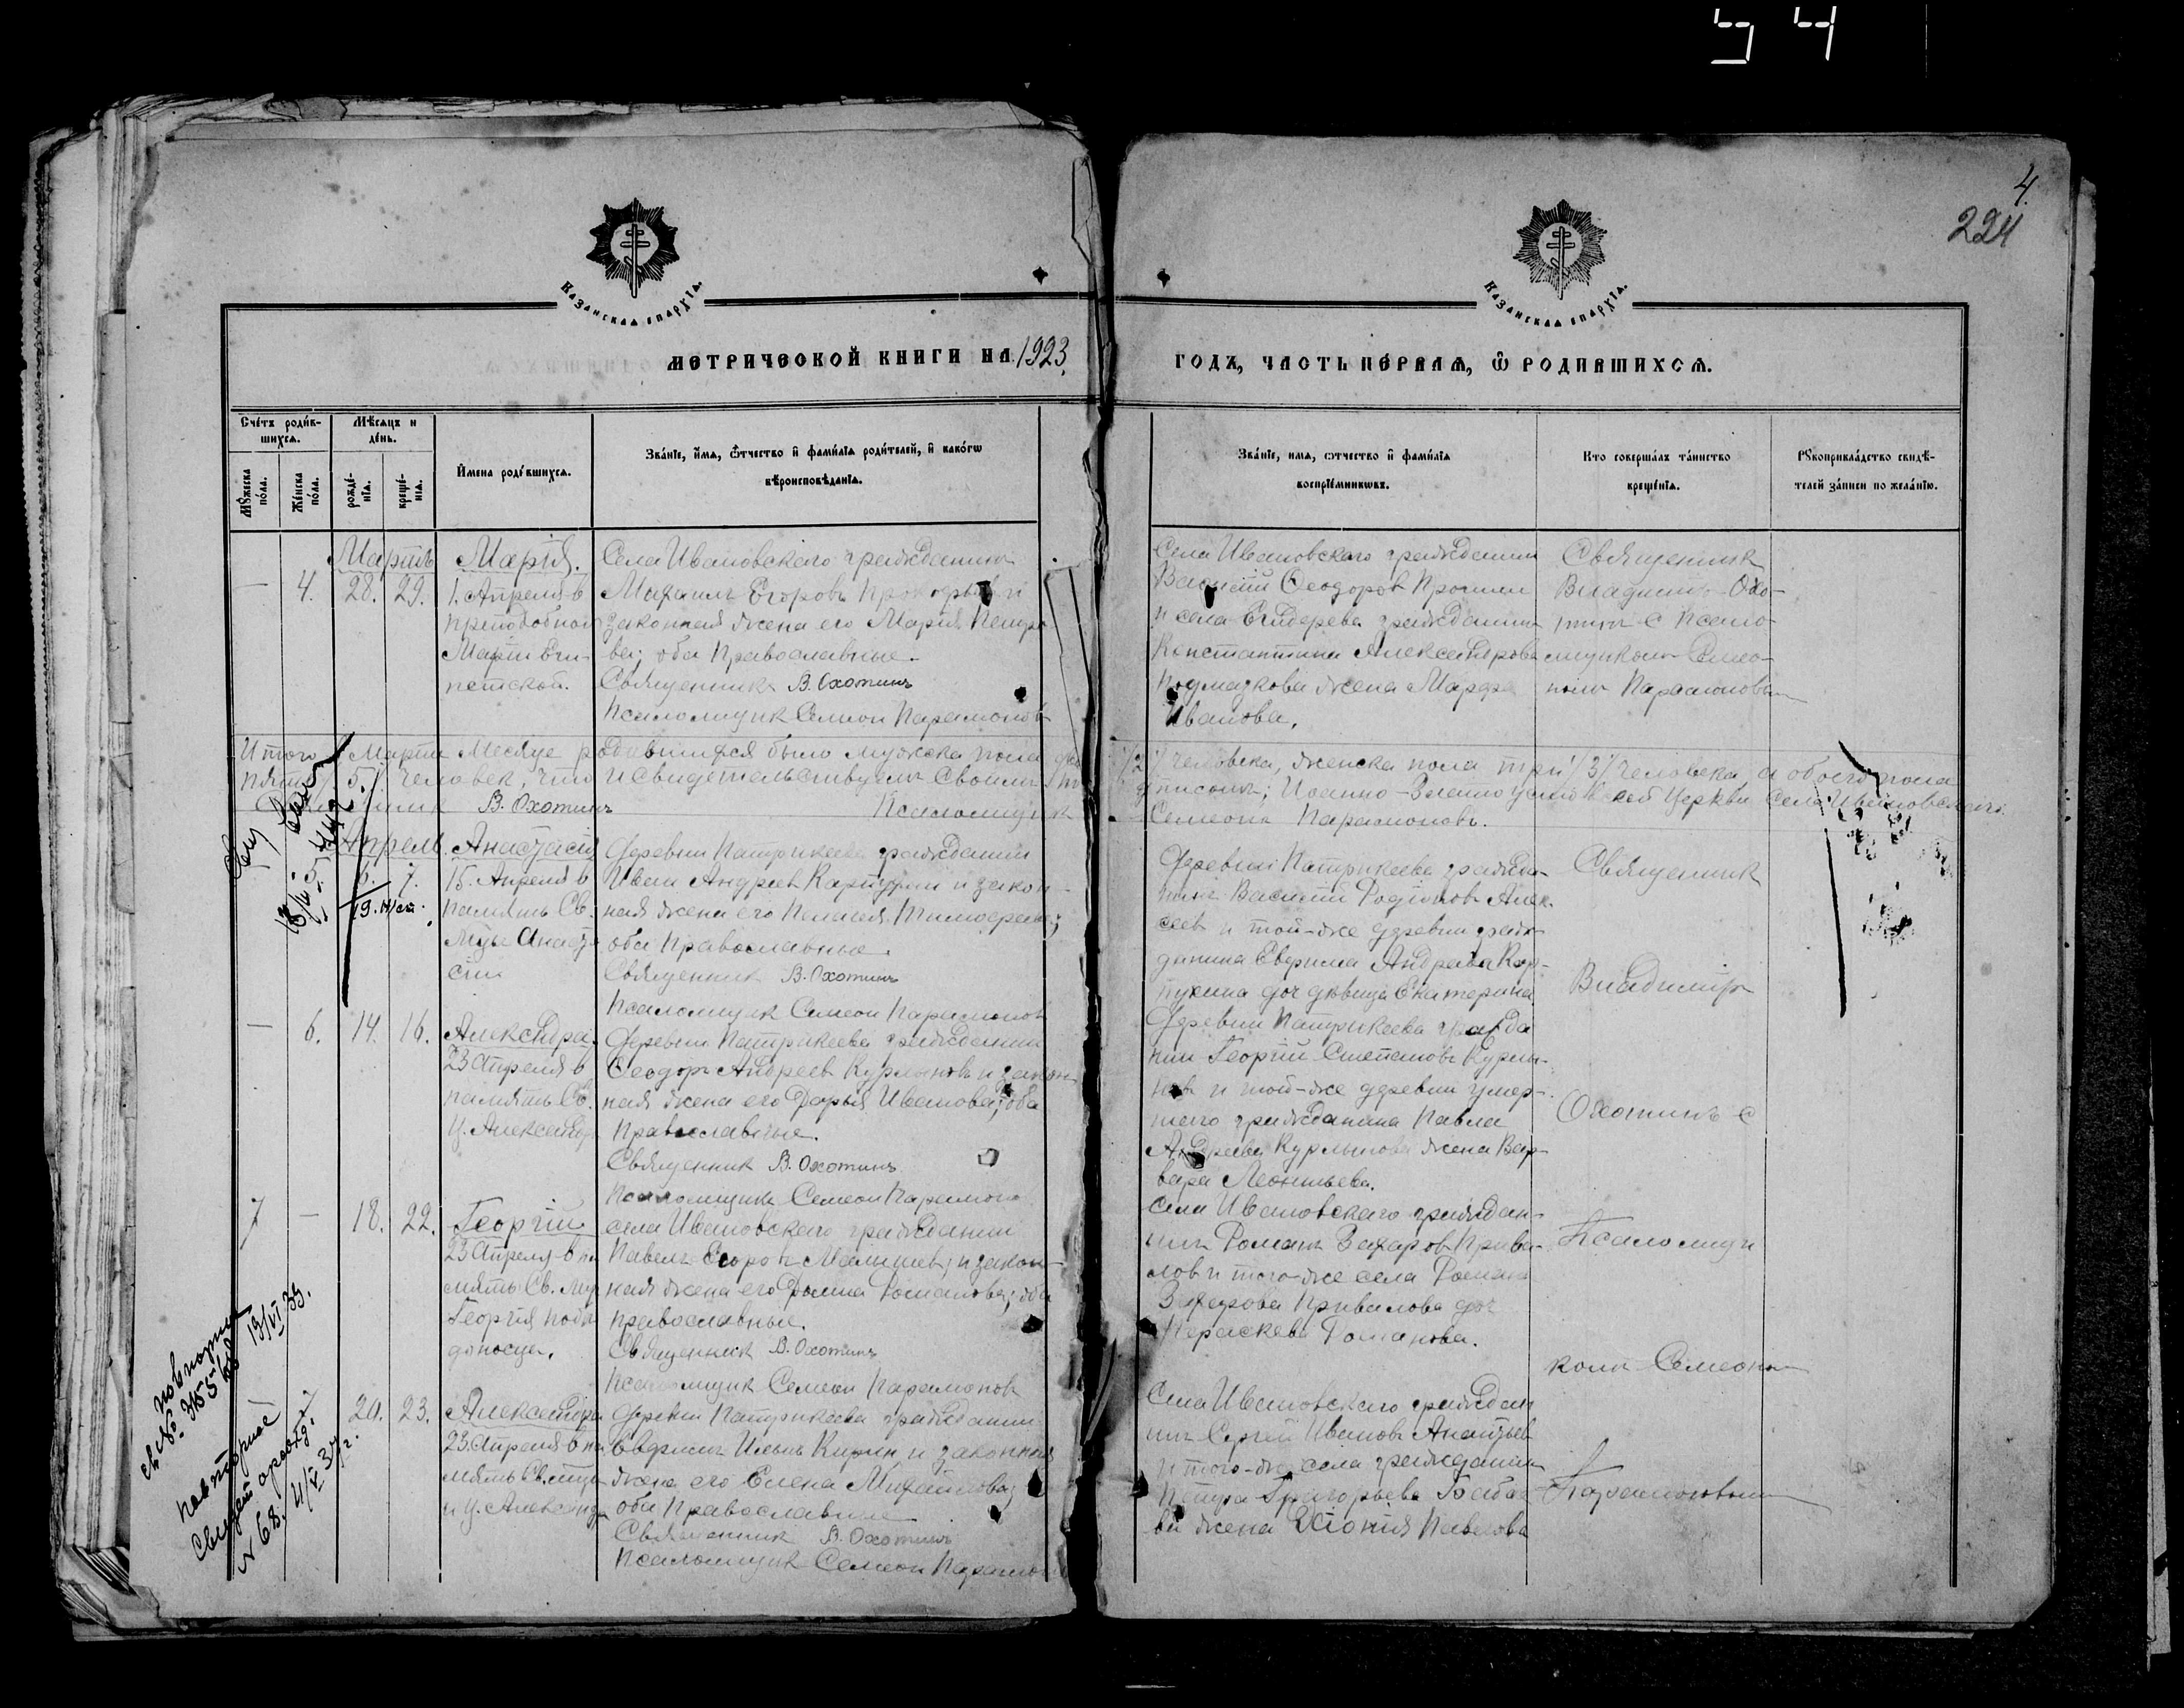 4.
224
Казанская епархія.
Казанская епархія.
Метрической книги на 1923
годъ, часть первая, ѿ родившихся.
Счетъ родив-
шихся.
Мѣсяцъ и
день.
Мꙋжеска пола.
Женска пола.
рожде-
нія.
креще-
нія.
Имена родившихся.
Званіе, имя, ѿчество и фамилія родителей, и какогѡ
вѣроисповѣданія.
Званіе, имя, ѡтчество и фамилія
воспріемникѡвъ.
Кто совершалъ таинство
крещенія.
Рꙋкоприкладство свидѣ-
телей записи по желанію.
Мартъ
— 4. 28. 29.
Марія.
1. Апреля в
преподобной
Маріи Еги-
петской.
Села Ивановскаго гражданинъ
Михаилъ Егоровъ и
законная жена его Марія Петро
ва; оба Православные.
Священникъ В. Охотинъ
Псаломщик Семеон Парамонов
Села Ивановскаго гражданин
Василій Феодоров
и села гражданина
Константина Александрова
жена Марфа
Иванова.
Священник
Владимир Охо-
тин с псало-
мщиком Семео-
ном Парамоновым
Итого в Марте Месяце родившихся было мужска пола два
/2/ человека, женска пола три /3/ человека, а обоего пола
пять /5/ человек, что и свидетельствуем своим
подписом; Иоанно-Златоустовской Церкви села Ивановскаго
Священник В. Охотинъ Псаломщик
Семеонъ Парамоновъ.
Апрель
6. 7.
19. н/ст.
Анастасія
15. Апреля в
память Св.
Мцы Анаста
сіи
Деревни Патрикеева гражданин
Иван Андреев Карпухин и закон-
ная жена его Пелагея Тимофеева;
оба Православные.
Священник В. Охотинъ
Псаломщик Семеон Парамонов
Деревни Патрикеева гражда-
нинъ Василій Родіонов Алек-
сеев и той-же деревни граж-
данина Евфима Андреева Кар-
пухина доч девица Екатерина
Священник
Владимір
— 6. 14. 16.
Александра.
23 Апреля в
память Св.
Ц. Александр
Деревни Патрикеева гражданин
Феодор Андреев Курлыков и закон-
ная жена его Дарья Иванова; оба
Православные.
Священник В. Охотинъ
Псаломщик Семеон Парамонов
Деревни Патрикеева гражда
нин Георгій Степанов Курлы-
ков и той-же деревни умер-
шаго гражданина Павла
Андреева Курлыкова жена Вар-
вара Леонтьева.
Охотинъ с
7 — 18. 22.
Георгій
23 Апреля в па
мять Св. Мц
Георгія побе
доносца.
села Ивановскаго гражданин
Павелъ Егоров Малышев, и закон-
ная жена его Романова; оба
православные.
Священник В. Охотинъ
Псаломщик Семеон Парамонов
Села Ивановскаго граждан-
ин Роман Захаров Прива-
лов и того-же села Романа
Захарова Привалова доч
Параскева Романова.
Псаломщи
ком Семеоном
7 20. 23.
Александра
23. Апреля в па
мять Св. мцы
и Ц. Александр
Деревни Патрикеева гражданин
Евфимъ Ильин и законная
жена его Елена Михайлова;
оба Православные
Священник В. Охотинъ
Псаломщик Семеон Парамонов
Села Ивановскаго граждан
ин Сергей Иванов Анатьев
и того-же села гражданина
Петра Григорьева
ва жена Хіонія Павлова
Парамоновым
повторн
св. № 3155 13/VI 33.
повторное
Свидет о рожд.
№ 68. 4/V 37 г.